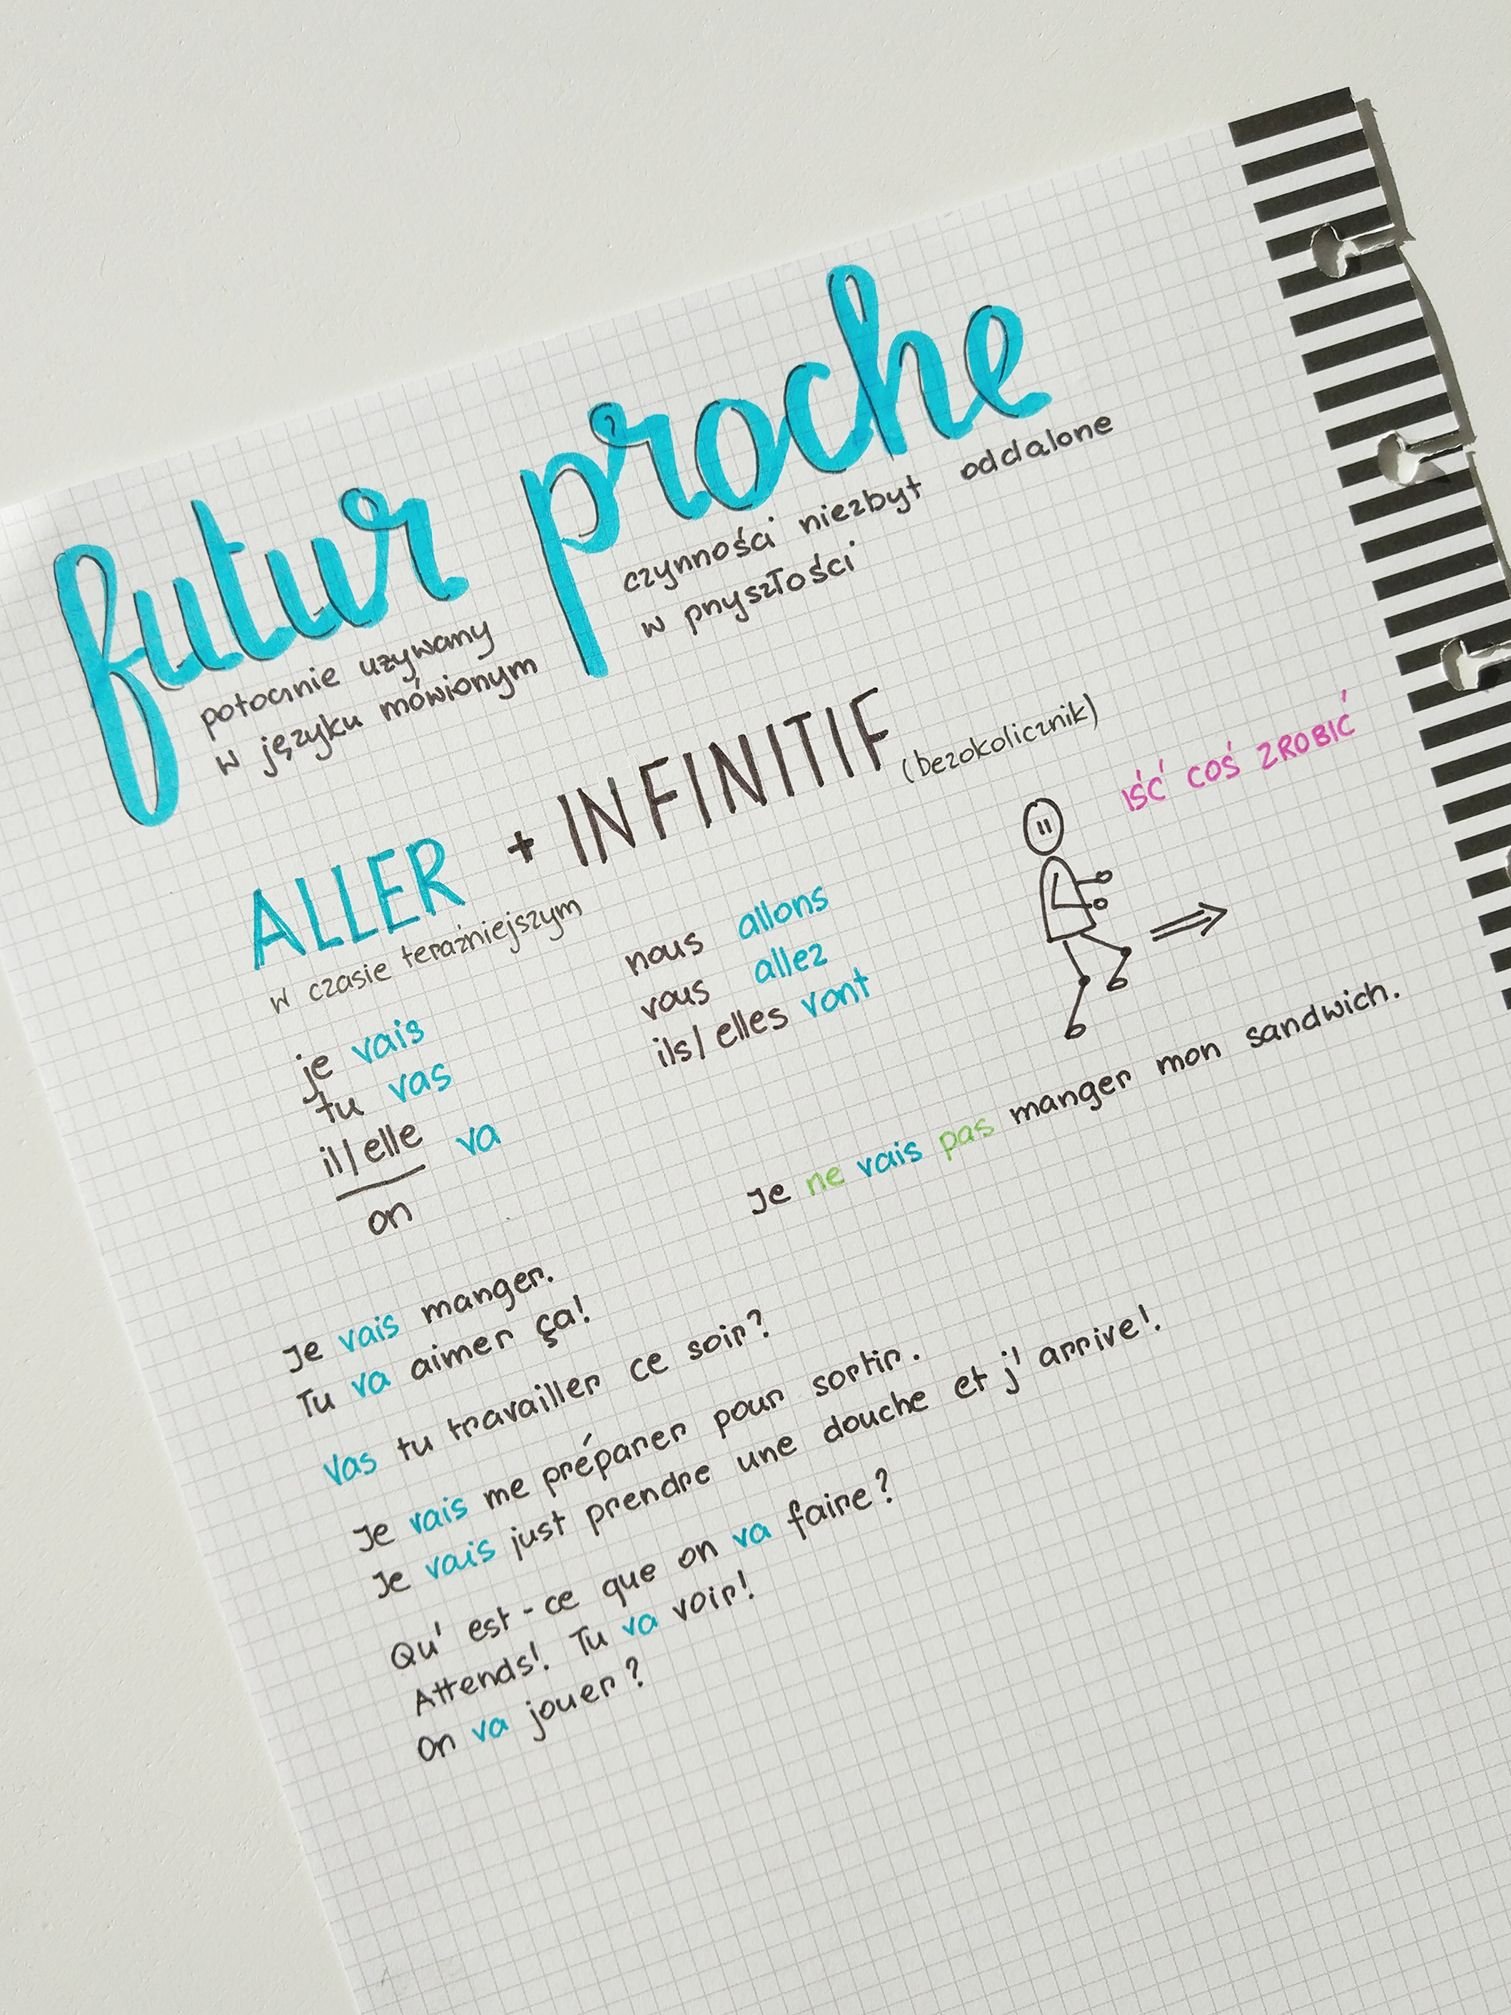 futur proche
potocznie używany
w języku mówionym
czynności niezbyt oddalone
w przyszłości
ALLER + INFINITIF (bezokolicznik)
w czasie teraźniejszym
IŚĆ COŚ ZROBIĆ
je vais
tu vas
il/elle va
on
nous allons
vous allez
ils/elles vont
Je ne vais pas manger mon sandwich.
Je vais manger.
Tu va aimer ça!
Vas tu travailler ce soir?
Je vais me préparer pour sortir.
Je vais just prendre une douche et j'arrive!.
Qu'est-ce que on va faire?
Attends!. Tu va voir!
On va jouer?